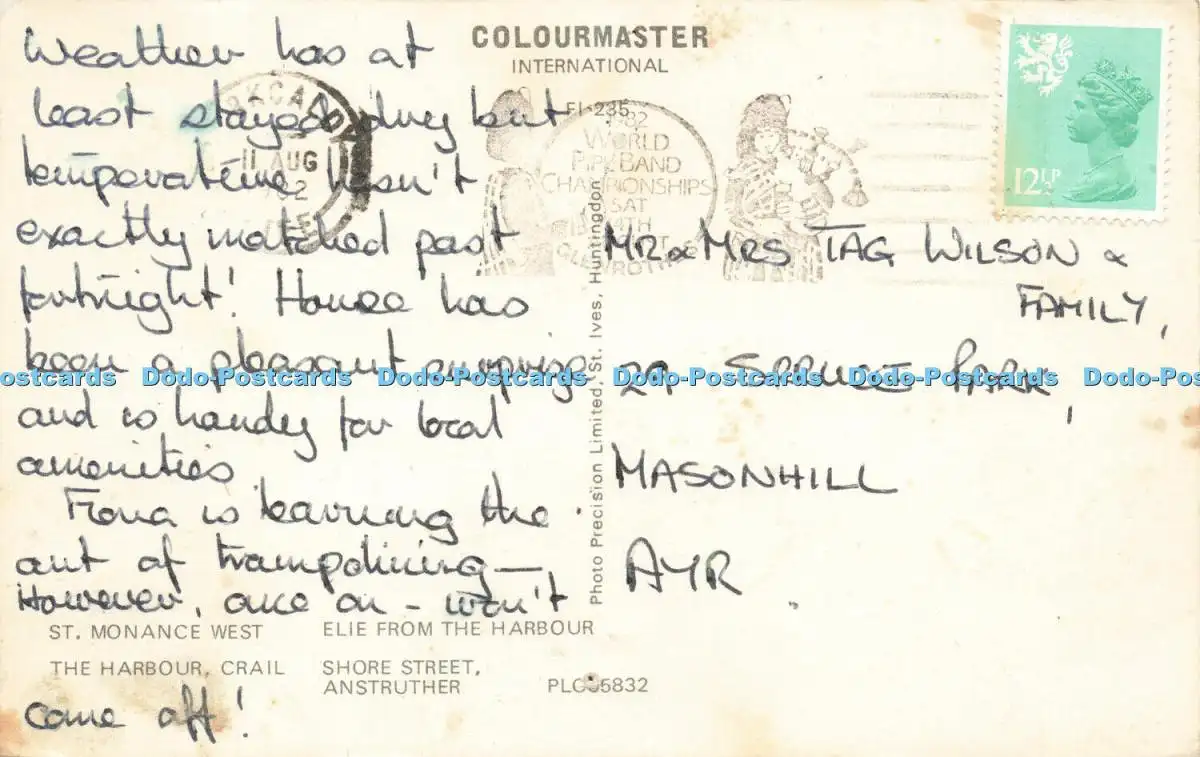 COLOURMASTER
INTERNATIONAL
FI-235
Weather has at
least stayed dry but
temperature hasn't
exactly matched past
fortnight! House has
been a pleasant surprise
and is handy for local
amenities.
Fiona is learning the
art of trampolining —
However, once on - won't
come off!
11 AUG
WORLD
PIPE BAND
CHAMPIONSHIPS
SAT
14TH
12½P
MR & MRS TAG WILSON &
FAMILY,
29 SPRUCE PARK,
MASONHILL
AYR.
Photo Precision Limited, St. Ives, Huntingdon
ST. MONANCE WEST ELIE FROM THE HARBOUR
THE HARBOUR, CRAIL SHORE STREET,
ANSTRUTHER
Dodo-Postcards Dodo-Postcards Dodo-Postcards Dodo-Postcards Dodo-Postcards